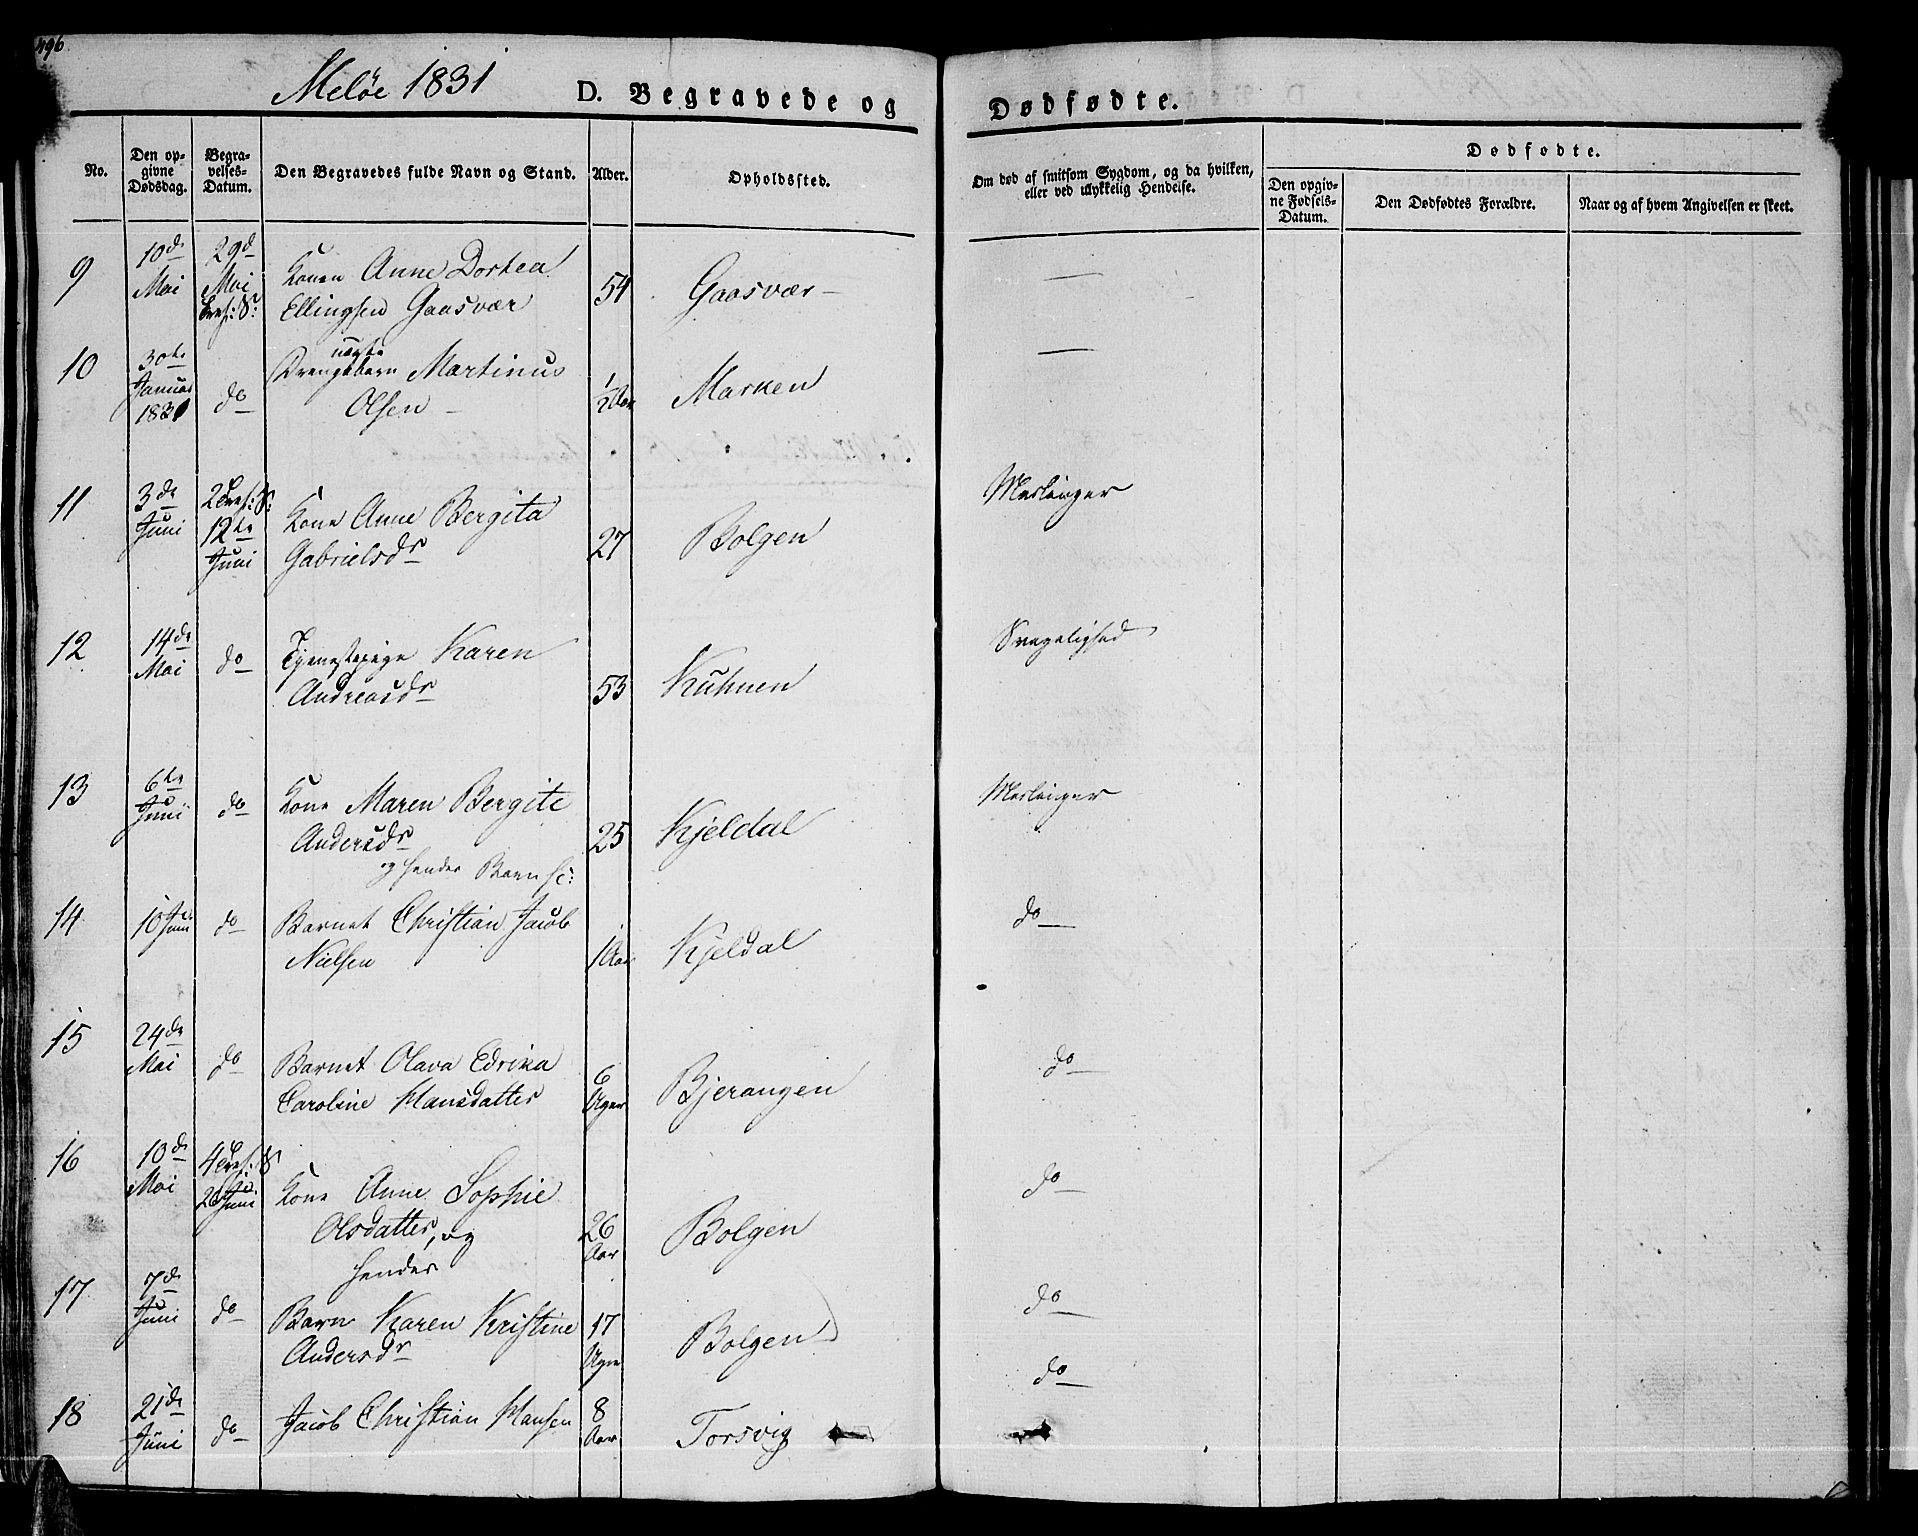 496
Meløe 1831
D. Begravede og Dødfødte.
No.
Den opgivne Dødsdag.
Begravelses-Datum.
Den Begravedes fulde Navn og Stand.
Alder.
Opholdssted.
Om død af smitsom Sygdom, og da hvilken, eller ved ulykkelig Hendelse.
Dødfødte.
Den opgivne Fødsels-Datum.
Den Dødfødtes Forældre.
Naar og af hvem Angivelsen er skeet.
9 10de Mai 29de Mai Konen Anne Dortea
Ellingsen Gaasvær 54 Gaasvær —
10 30te Januar 1831 do Drengebarn Martinus
Olsen — 1/2 Aar Marken —
11 3de Juni 2 Tref: S: 12te Juni Kone Anne Bergita
Gabrielsdr 27 Bolgen Meslinger
12 14de Mai do Tjenestepige Karen
Andreasdr 53 Kuhnen Svagelighed
13 6te Juni do Kone Maren Bergite
Andersdr 25 Kjeldal Meslinger
og hendes Barn
14 10 Juni do Barnet Christian Jacob
Nielsen 1 Aar Kjeldal do
15 24de Mai do Barnet Olava Edrika
Caroline Hansdatter 6 Uger Bjerangen do
16 10de Mai 4 Tref: S 26 Juni Kone Anne Sophie
Olsdatter, og 26 Aar Bolgen do
hendes
17 7de Juni do Barn Karen Kristine
Andersdr 17 Uger Bolgen do
18 21de Juni do Jacob Christian Hansen 8 Aar Torsvig do